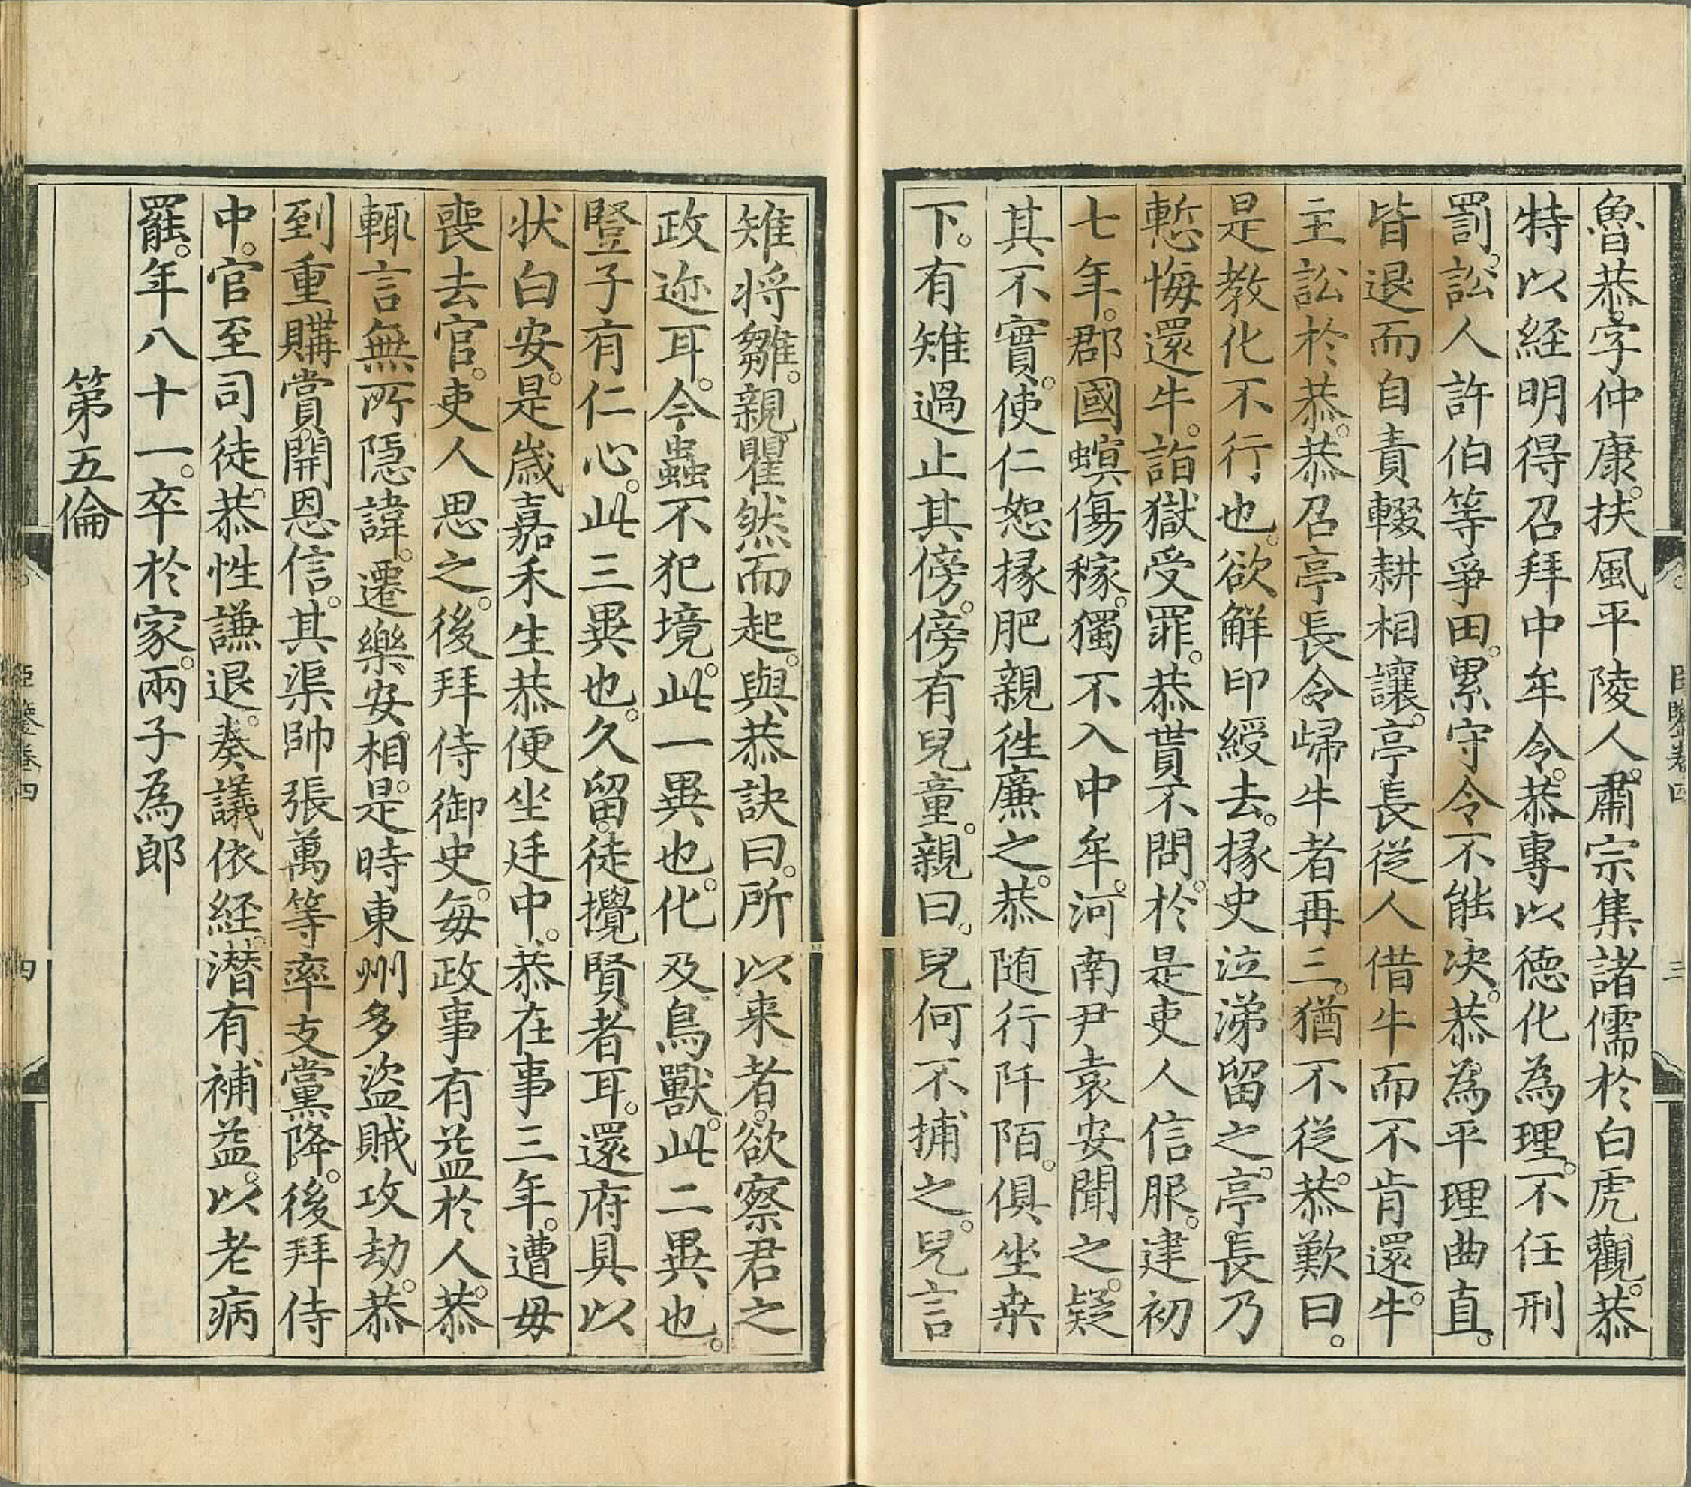 魯恭。字仲康。扶風平陵人。肅宗集諸儒於白虎觀。恭
特以経明得召拜中牟令。恭專以德化為理。不任刑
罰。訟人許伯等爭田。累守令不能决。恭為平理曲直。
皆退而自責輟耕相讓。亭長從人借牛而不肯還牛。
主訟於恭。恭召亭長令歸牛者再三。猶不從。恭歎曰。
是教化不行也。欲解印綬去。掾史泣涕留之。亭長乃
慙悔還牛。詣獄受罪。恭貰不問。於是吏人信服。建初
七年。郡國螟傷稼。獨不入中牟。河南尹袁安聞之。疑
其不實。使仁恕掾肥親徃廉之。恭随行阡陌。俱坐桒
下。有雉過止其傍。傍有兒童。親曰。兒何不捕之。兒言
雉将雛。親瞿然而起。與恭訣曰。所以来者。欲察君之
政迹耳。今蟲不犯境。此一異也。化及鳥獸。此二異也。
豎子有仁心。此三異也。久留。徒攪賢者耳。還府具以
状白安。是歳嘉禾生恭便坐廷中。恭在事三年。遭毋
喪去官。吏人思之。後拜侍御史。每政事有益於人。恭
輒言無所隠諱。遷樂安相。是時東州多盜賊攻劫。恭
到重購賞。開恩信。其渠帥張萬等率支黨降。後拜侍
中。官至司徒。恭性謙退。奏議依経。潜有補益。以老病
罷。年八十一。卒於家。兩子為郎
第五倫
臣鑒卷四
三
臣鑒卷四
四